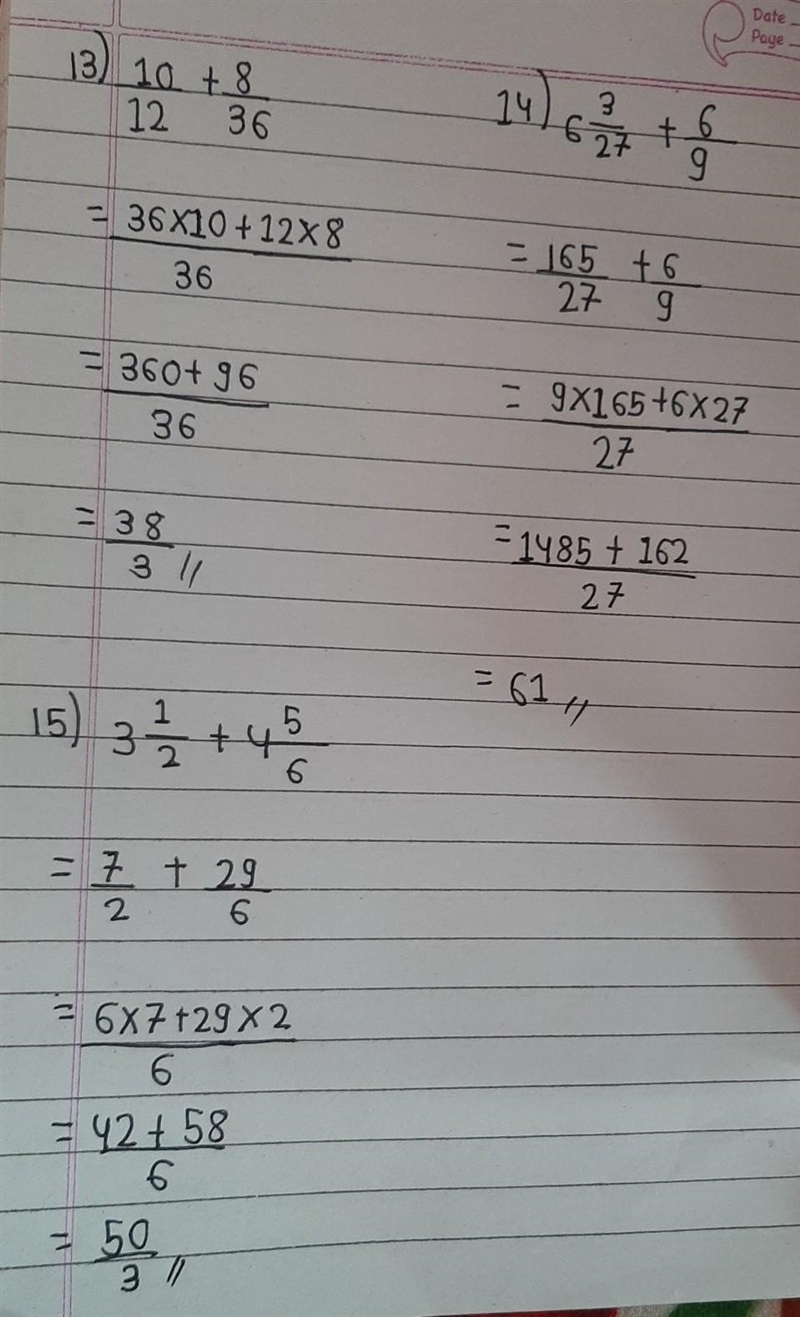 Date
Page
13) 10/12 + 8/36
= 36×10+12×8/36
= 360+96/36
= 38/3 //
14) 6 3/27 + 6/9
= 165/27 + 6/9
= 9×165+6×27/27
= 1485 + 162/27
= 61 //
15) 3 1/2 + 4 5/6
= 7/2 + 29/6
= 6×7+29×2/6
= 42+58/6
= 50/3 //